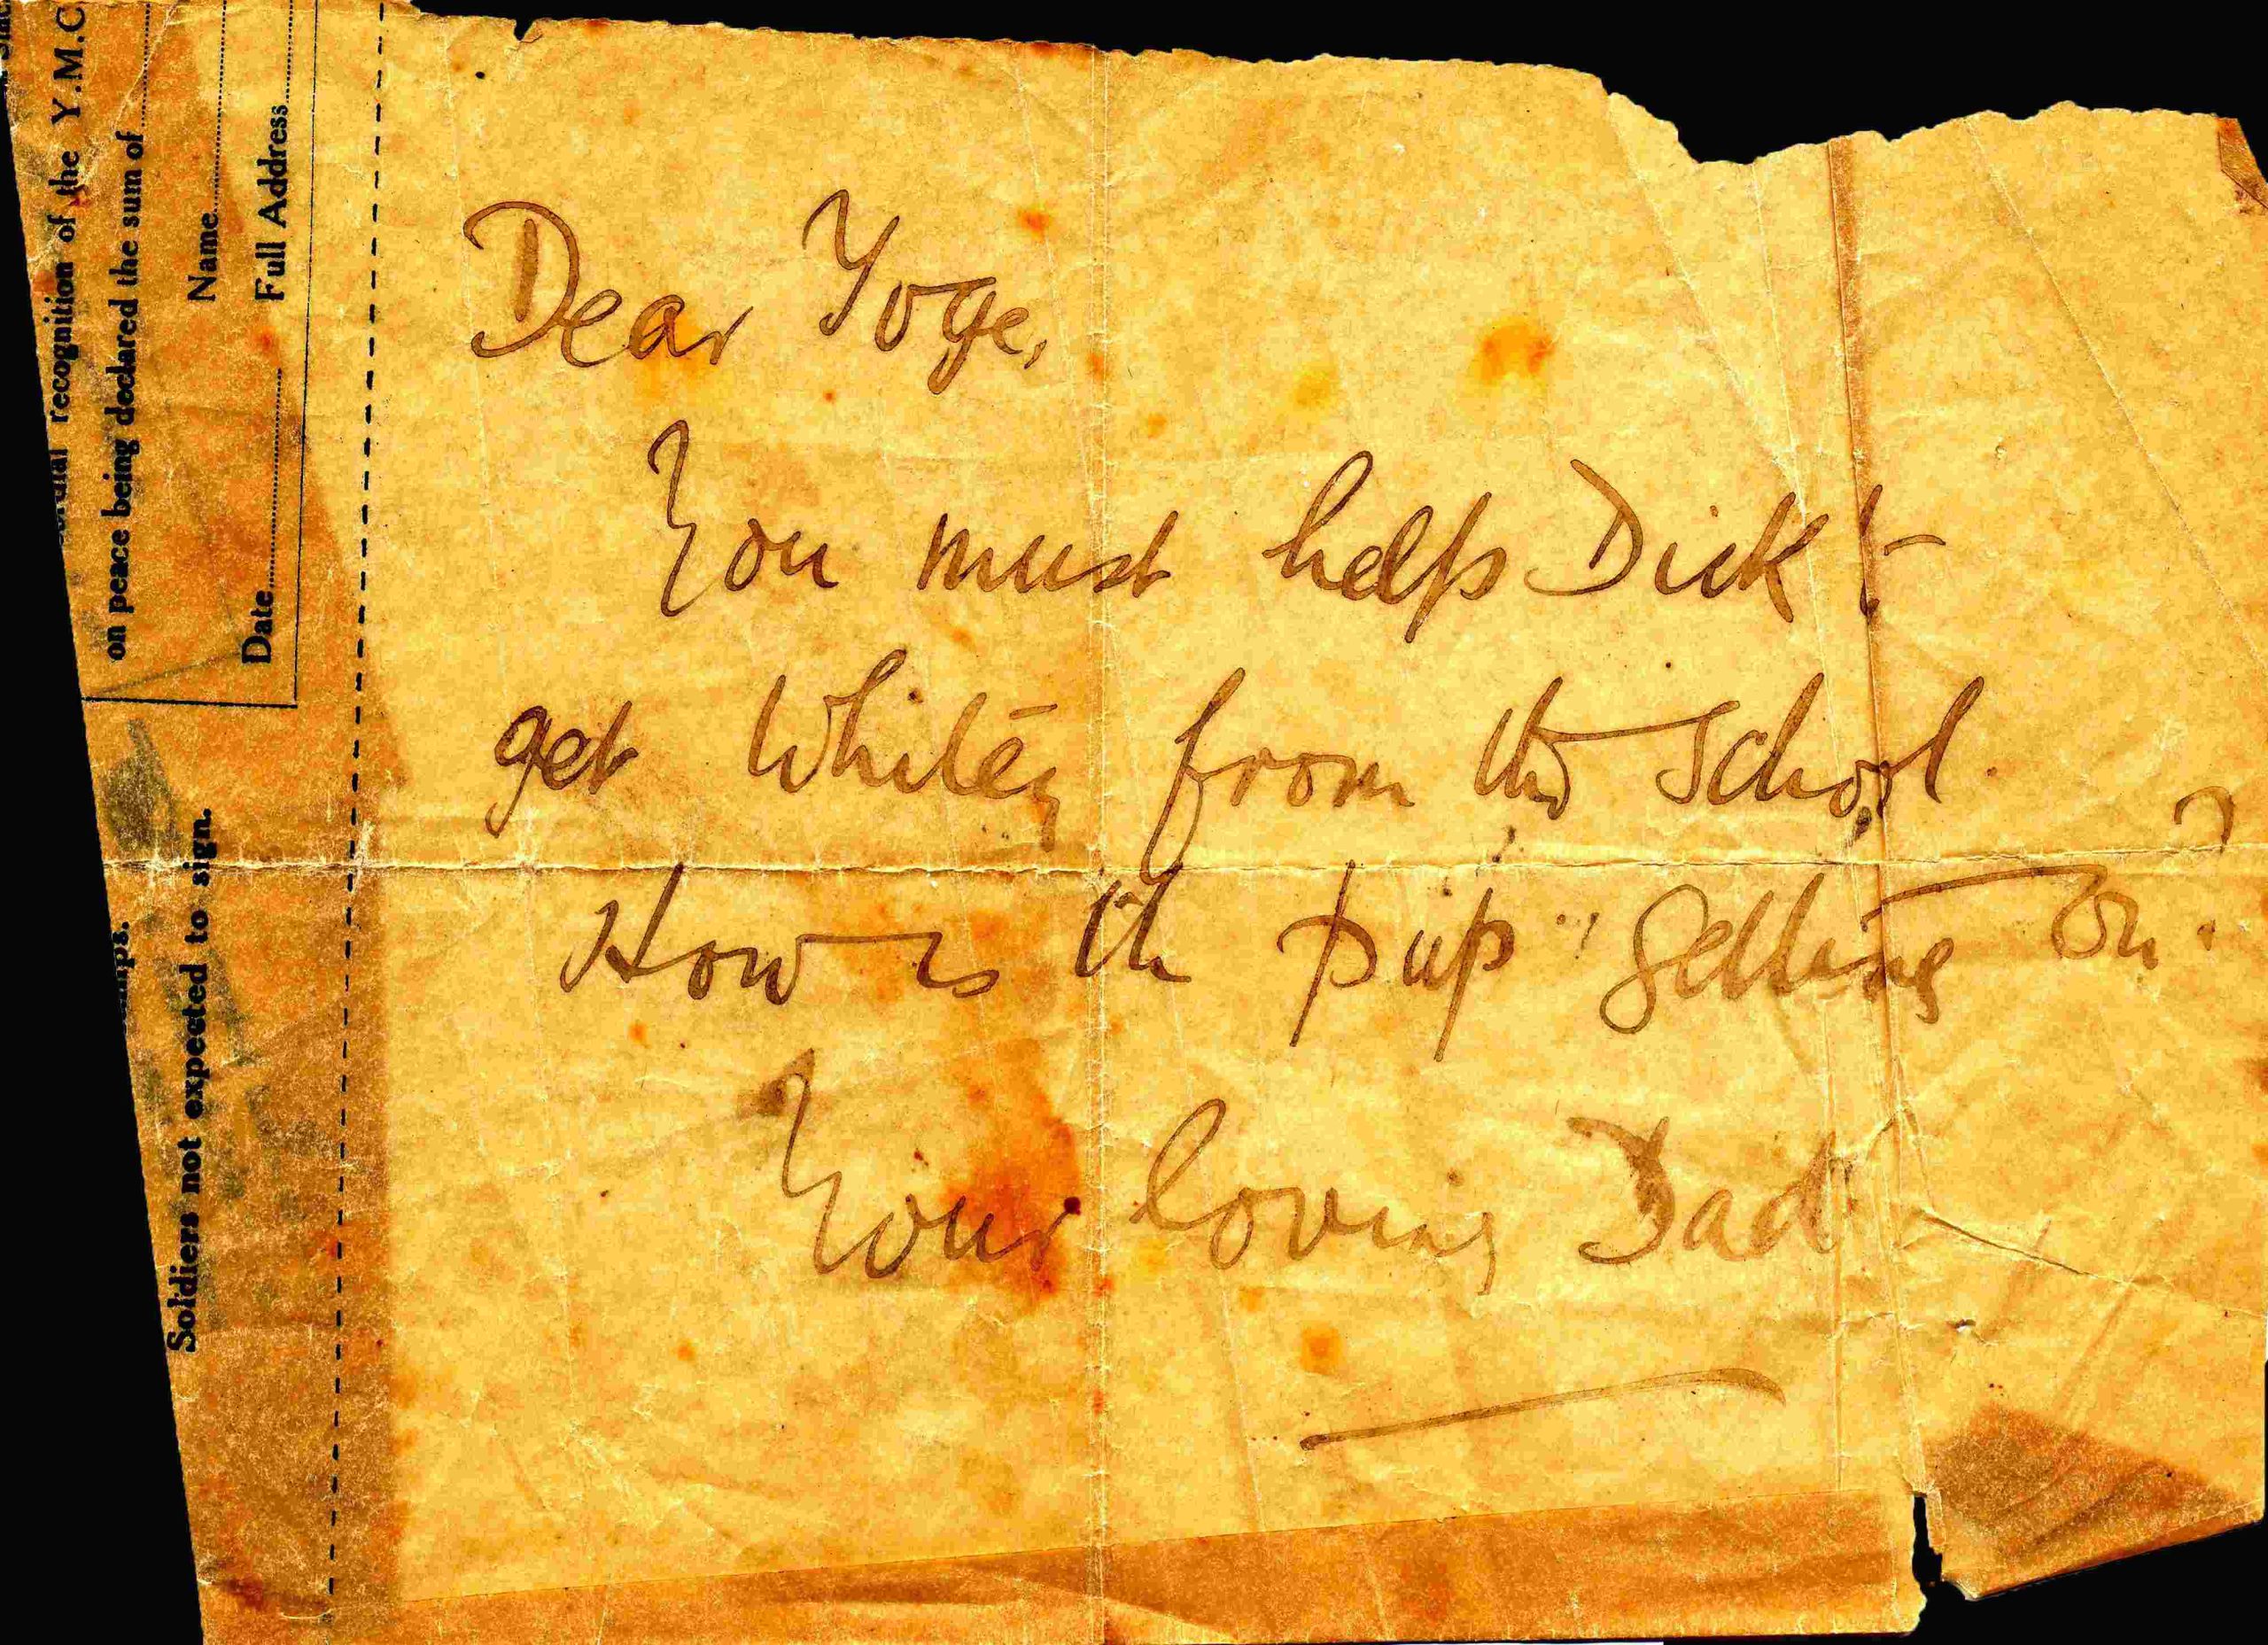 Dear Yoge,
You must help Dick to
get Whitey from the school.
How is the pup getting on?
Your loving Dad
recognition of the Y.M.C
on peace being declared the sum of
Name
Date Full Address
Soldiers not expected to sign.